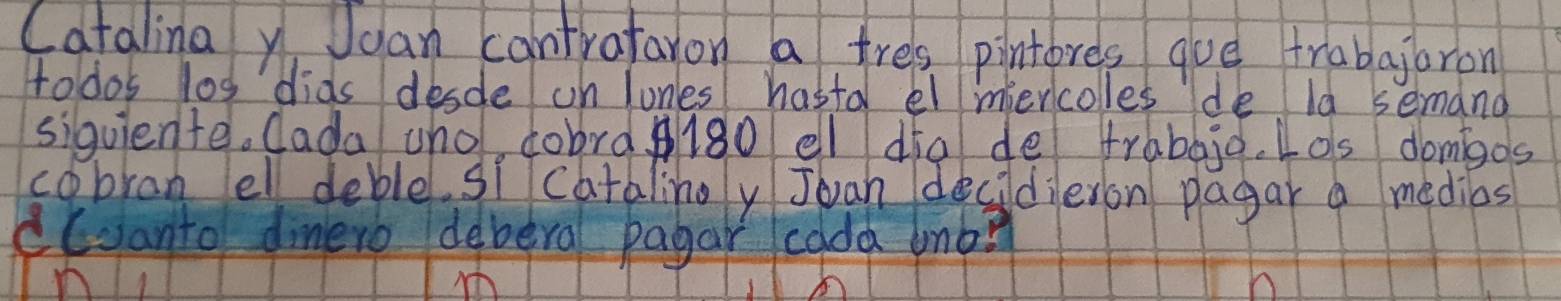 Catalina y Juan cantrataron a tres pintores que trabajaron
todos los dias desde un lunes hasta el miercoles de la semana
siguiente. Cada uno cobra $180 el dia de trabajo. Los domigos
cobran el deble. Si Catalina y Juan decidieron pagar a medias
¿Cuanto dinero debera pagar cada uno?